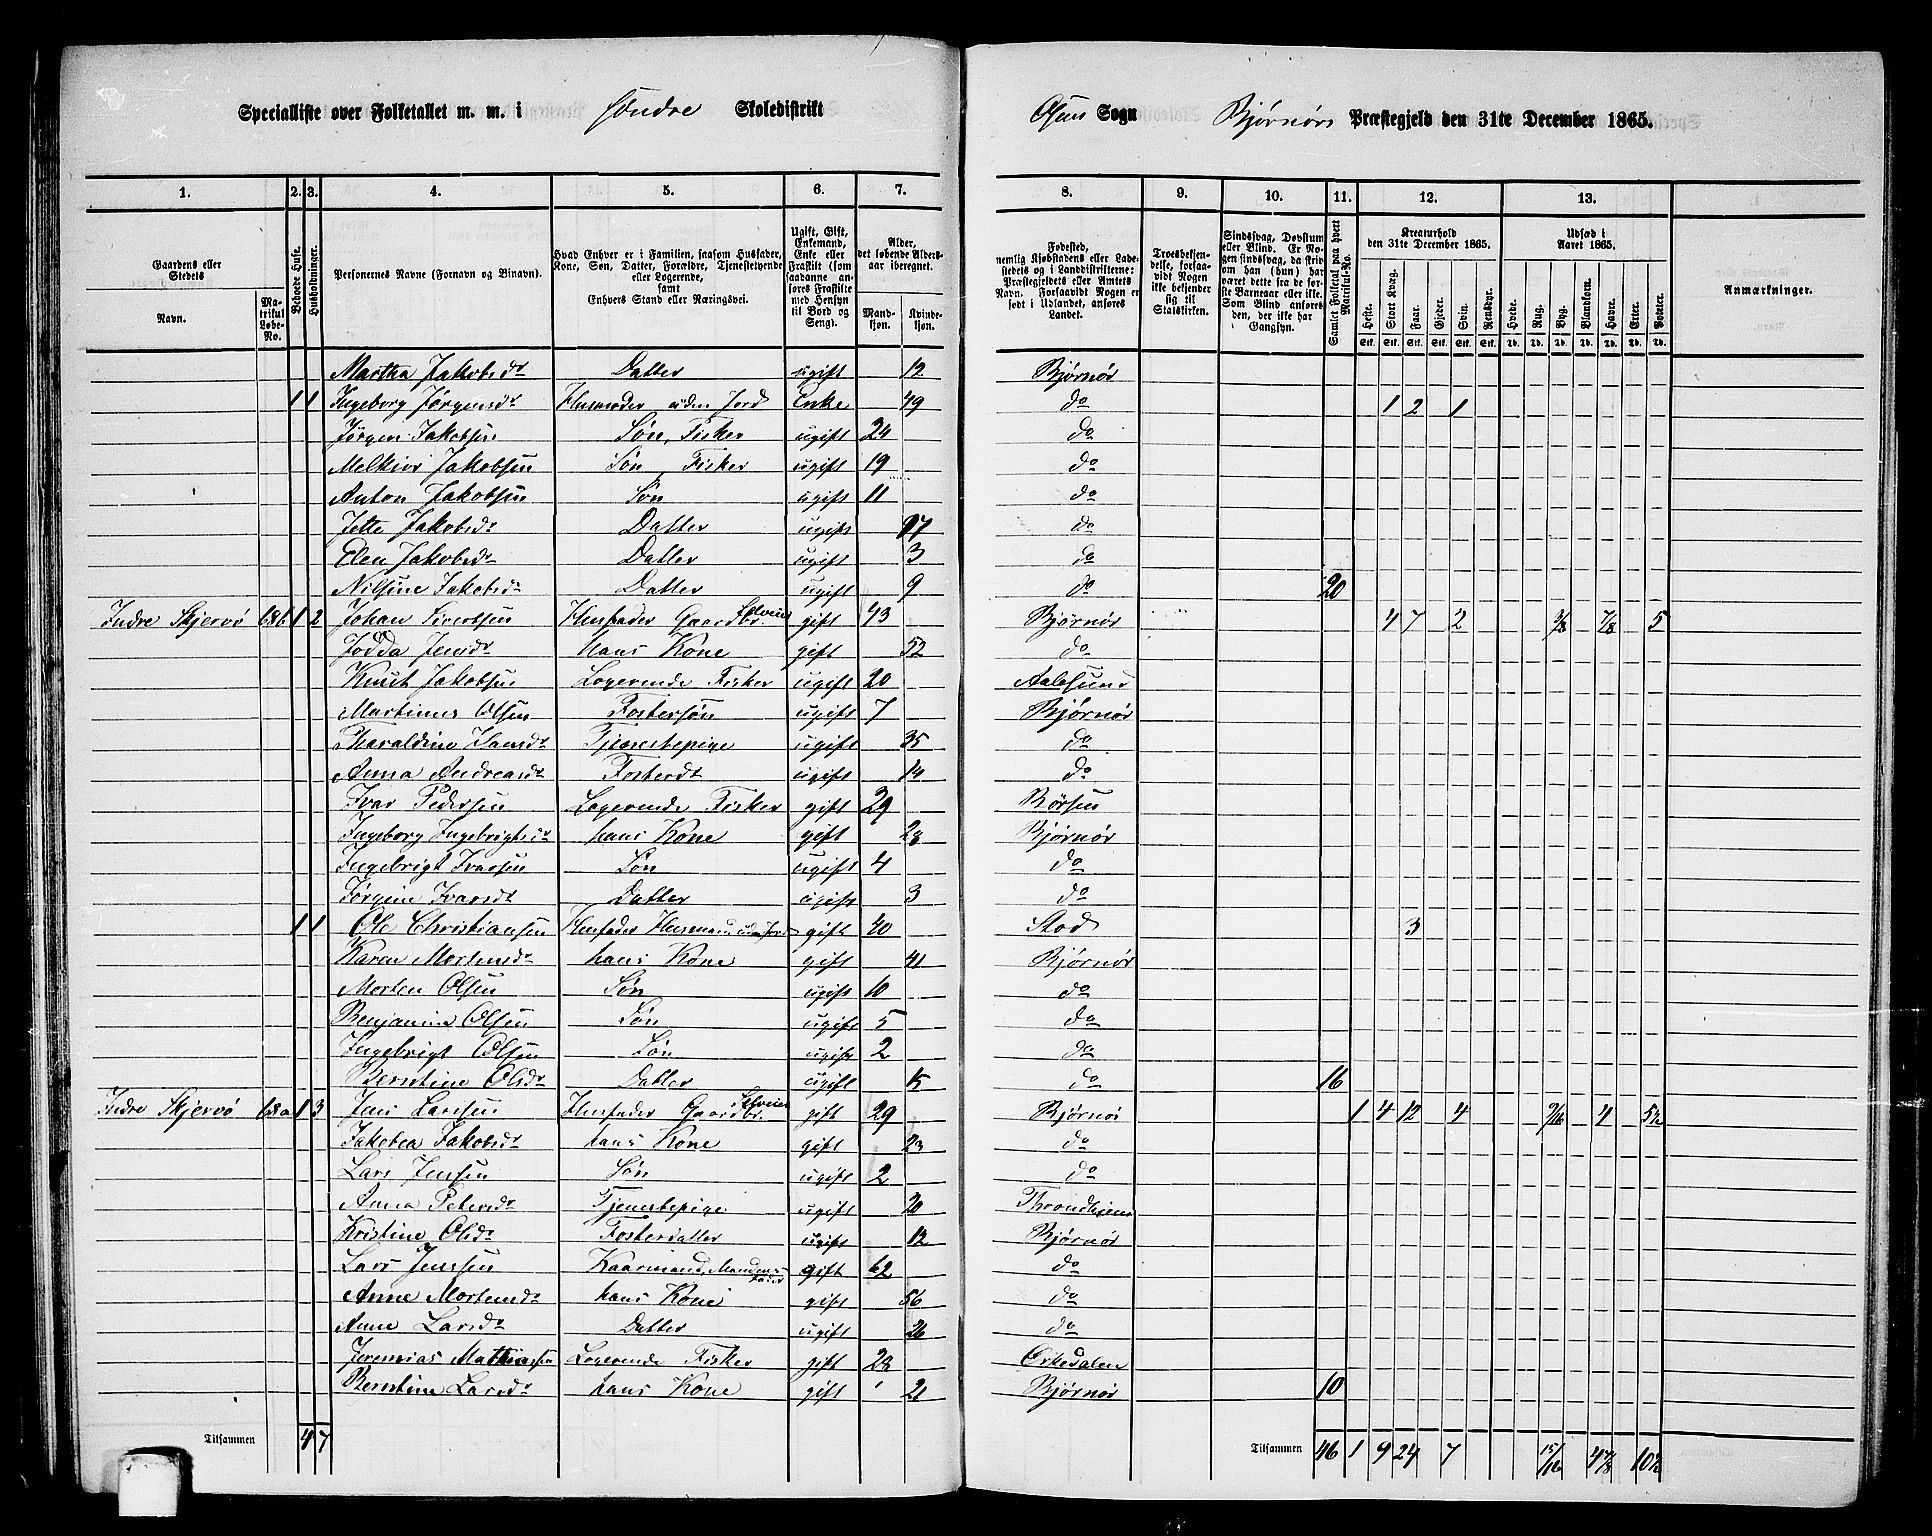 Specialliste over Folketallet m. m. i Søndre Skoledistrikt
Osens Sogn Bjørnørs Præstegjeld den 31te December 1865.
1. 2. 3. 4. 5. 6. 7. 8. 9. 10. 11. 12. 13.
Gaardens eller Stedets
Navn.
Matrikul Løbe-No.
Beboede Huse.
Husholdninger.
Personernes Navne (Fornavn og Binavn).
Hvad Enhver er i Familien, saasom Husfader, Kone, Søn, Datter, Forældre, Tjenestetyende eller Logerende, samt Enhvers Stand eller Næringsvei.
Ugift, Gift, Enkemand, Enke eller Fraskilt (som saadanne anføres Fraskilte med Hensyn til Bord og Seng).
Alder, det løbende Alders-aar iberegnet.
Mandkjøn. Kvindekjøn.
Fødested, nemlig Kjøbstadens eller Ladestedets og i Landdistrikterne: Præstegjeldets eller Amtets Navn. Forsaavidt Nogen er født i Udlandet, anføres Landet.
Troesbekjendelse, forsaavidt Nogen ikke bekjender sig til Statskirken.
Sindssvag, Døvstum eller Blind. Er Nogen sindssvag, da skrives om han (hun) har været dette fra de første Barneaar eller ikke. Som Blind anføres den, der ikke har Gangsyn.
Samlet Folketal paa hvert Matrikul-No.
Kreaturhold den 31te December 1865.
Heste. Stort Kvæg. Faar. Gjeder. Svin. Rensdyr.
Udsæd i Aaret 1865.
Hvede. Rug. Byg. Blandkorn. Havre. Erter. Poteter.
Anmærkninger.
Martha Jakobsdr Datter ugift 12 Bjørnør
1 1 Ingeborg Jørgensdr Husmoder uden Jord Enke 49 do 1 2 1
Jørgen Jakobsen Søn, Fisker ugift 24 do
Melkior Jakobsen Søn Fisker ugift 19 do
Anton Jakobsen Søn ugift 11 do
Jette Jakobsdr Datter ugift 17 do
Elen Jakobsdr Datter ugift 3 do
Nilsine Jakobsdr Datter ugift 9 do 20
Indre Skjervø 68b 1 2 Johan Siversen Husfader Gaardbr. Selveier gift 43 Bjørnør 4 7 2 3/8 7/8 5
Jodda Jensdr hans Kone gift 52 do
Knut Jakobsen Logerende Fisker ugift 20 Aalesund
Martinus Olsen Fostersøn ugift 7 Bjørnør
Haraldine Hansdr Tjenestepige ugift 35 do
Anna Andreasdr Fosterdr ugift 14 do
Ivar Pedersen Logerende Fisker gift 29 Børsen
Ingeborg Ingebrigtsdr hans Kone gift 28 Bjørnør
Ingebrigt Ivarsen Søn ugift 4 do
Jørgine Ivarsdr Datter ugift 3 do
1 1 Ole Christiansen Husfader Husmand uden Jord gift 40 Stod 3
Karen Mortensdr hans Kone gift 41 Bjørnør
Morten Olsen Søn ugift 10 do
Benjamin Olsen Søn ugift 5 do
Ingebrigt Olsen Søn ugift 2 do
Berntine Olsdr Datter ugift 15 do 16
Indre Skjervø 68a 1 3 Jens Larsen Husfader Gaardbr. Selveier gift 29 Bjørnør 1 4 12 4 9/16 4 5½
Jakobea Jakobsdr hans Kone gift 23 do
Lars Jensen Søn ugift 2 do
Anna Petersdr Tjenestepige ugift 20 Throndhjem
Kristine Olsdr Fosterdatter ugift 12 Bjørnør
Lars Jenssen Kaarmand, Mandens Fader gift 62 do
Anne Mortensdr hans Kone gift 56 do
Anne Larsdr Datter ugift 26 do
Jeremias Mathiassen Logerende Fisker gift 28 Orkedalen
Berntine Larsdr hans Kone gift 21 Bjørnør 10
Tilsammen 4 7 Tilsammen 46 1 9 24 7 15/16 4 7/8 10½